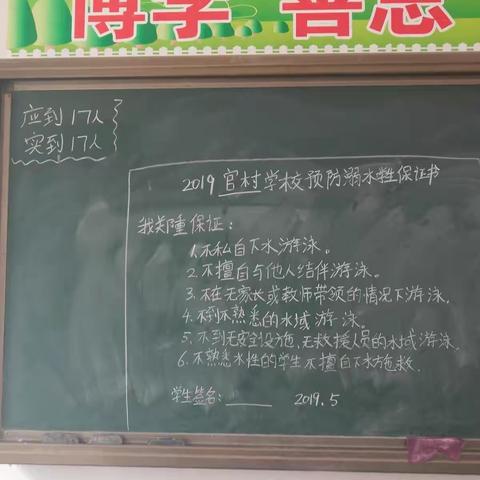 博学 善思
应到17人
实到17人
2019 官村学校预防溺水牲保证书
我郑重保证:
1.不私自下水游泳。
2.不擅自与他人结伴游泳。
3.不在无家长或教师带领的情况下游泳.
4.不到不熟悉的水域游泳。
5.不到无安全设施,无救援人员的水域游泳.
6.不熟悉水性的学生不擅自下水施救.
学生签名:______ 2019.5